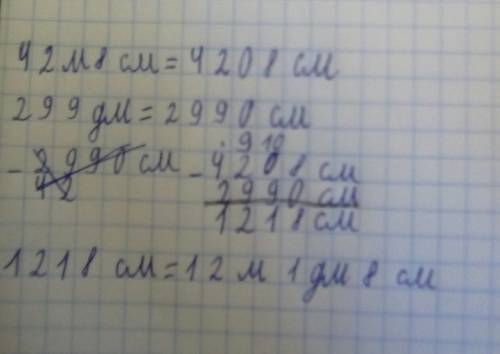 42 м 8 см = 4208 см
299 дм = 2990 см
9 10
- 2990 см - 4208 см
42 2990 см
1218 см
1218 см = 12 м 1 дм 8 см